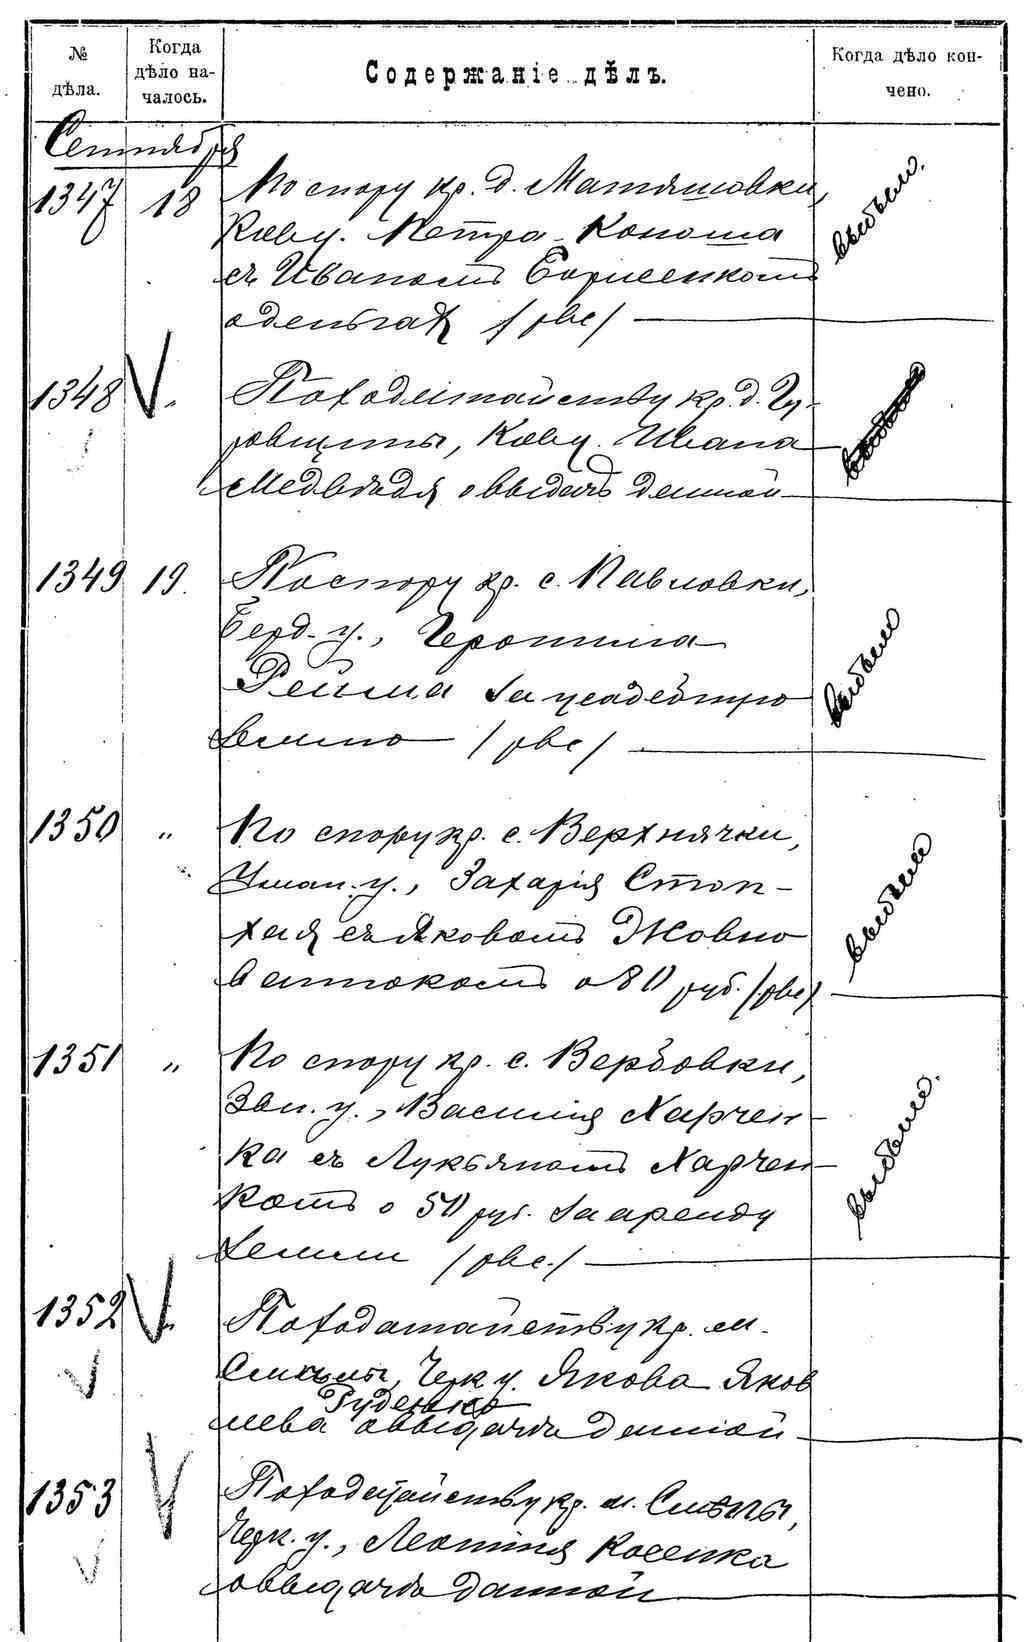 № дѣла.
Когда дѣло на-
чалось.
Содержаніе дѣлъ.
Когда дѣло кон-
чено.
Сентября
1347 18 По спору кр. д. Матяшовки, выбыло.
Кіев у. Петра Конаша
съ Иваномъ Борисенкомъ
о деньгах /рвс/
1348 По ходатайству кр. д. Гу-
ровщины, Кіев у. Ивана
Медвѣдя о выдачѣ данной
1349 19. По спору кр. с. Павловки, выбыло
Берд. у.,
за усадебную
землю /рвс/
1350 " По спору кр. с. Верхнячки, выбыло
Уман. у., Захарія Стоп-
хая съ Яковомъ Жовно
ватюкомъ о 80 руб. /рвс/
1351 " По спору кр. с. Вербовки, выбыло.
Зви. у., Василія Харчен-
ка съ Лукьяномъ Харчен-
комъ о 50 руб. за аренду
земли /рвс./
1352 По ходатайству кр. м.
Смѣлы, Черк у. Якова Яков
Руденко
лева о выдачѣ данной
1353 По ходатайству кр. м. Смѣлы,
Черк. у., Леонтія Косенка
о выдачѣ данной